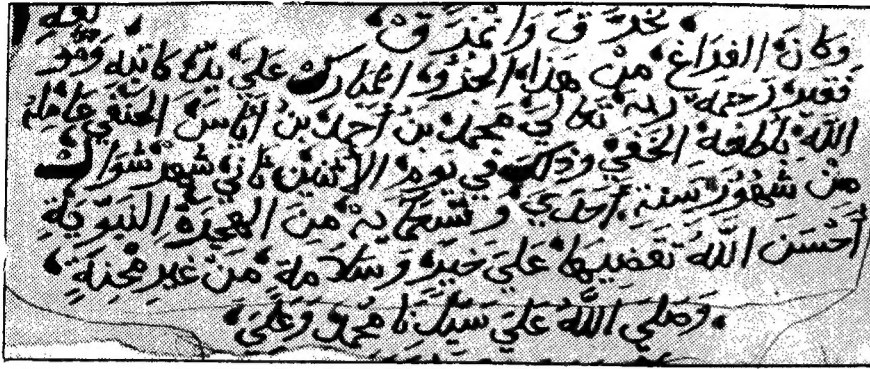 تخرق وانمزق
وكان الفراغ من هذا الجزو المبارك على يد كاتبه وهو
فقير رحمة ربه تعالى محمد بن أحمد بن أناس الحنفي عامله
الله بلطفه الخفي وذلك في يوم الاثنين ثاني شهر شوال
من شهور سنة أحدي وتسعماية من الهجرة النبوية
أحسن الله تقضيها على خير وسلامة من غير محنة
وصلي الله علي سيدنا محمد وعلى